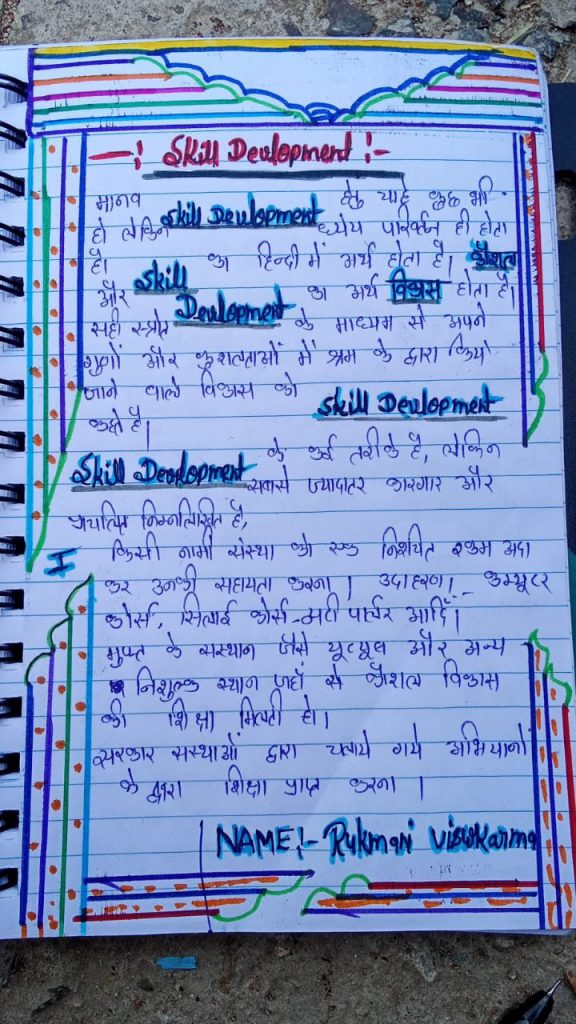 -: Skill Devlopment :-
मानव हेतु चाहे कुछ भी
हो लेकिन Skill Devlopment ध्येय परिर्वतन ही होता
है। का हिन्दी में अर्थ होता है। कौशल
और Skill
Devlopment का अर्थ विकास होता है।
सही स्त्रोत के माध्यम से अपने
गुणों और कुशलताओं में श्रम के द्वारा किये
जाने वाले विकास को
Skill Devlopment
कहते है।
के कई तरीके है, लेकिन
Skill Devlopment सबसे ज्यादातर कारगार और
प्रचलित निम्नलिखित है,
I किसी नामी संस्था को एक निशचित रकम अदा
कर उनकी सहायता करना। उदाहरण!- कम्प्यूटर
कोर्स, सिलाई कोर्स पार्लर आदि।
मुफ्त के संस्थान जैसे यूटयूब और अन्य
निशुल्क स्थान जहाँ से कौशल विकास
की शिक्षा मिलती हो।
सरकार संस्थाओं द्वारा चलाये गये अभियानों
के द्वारा शिक्षा प्राप्त करना।
NAME:- Rukmani Viswkarma